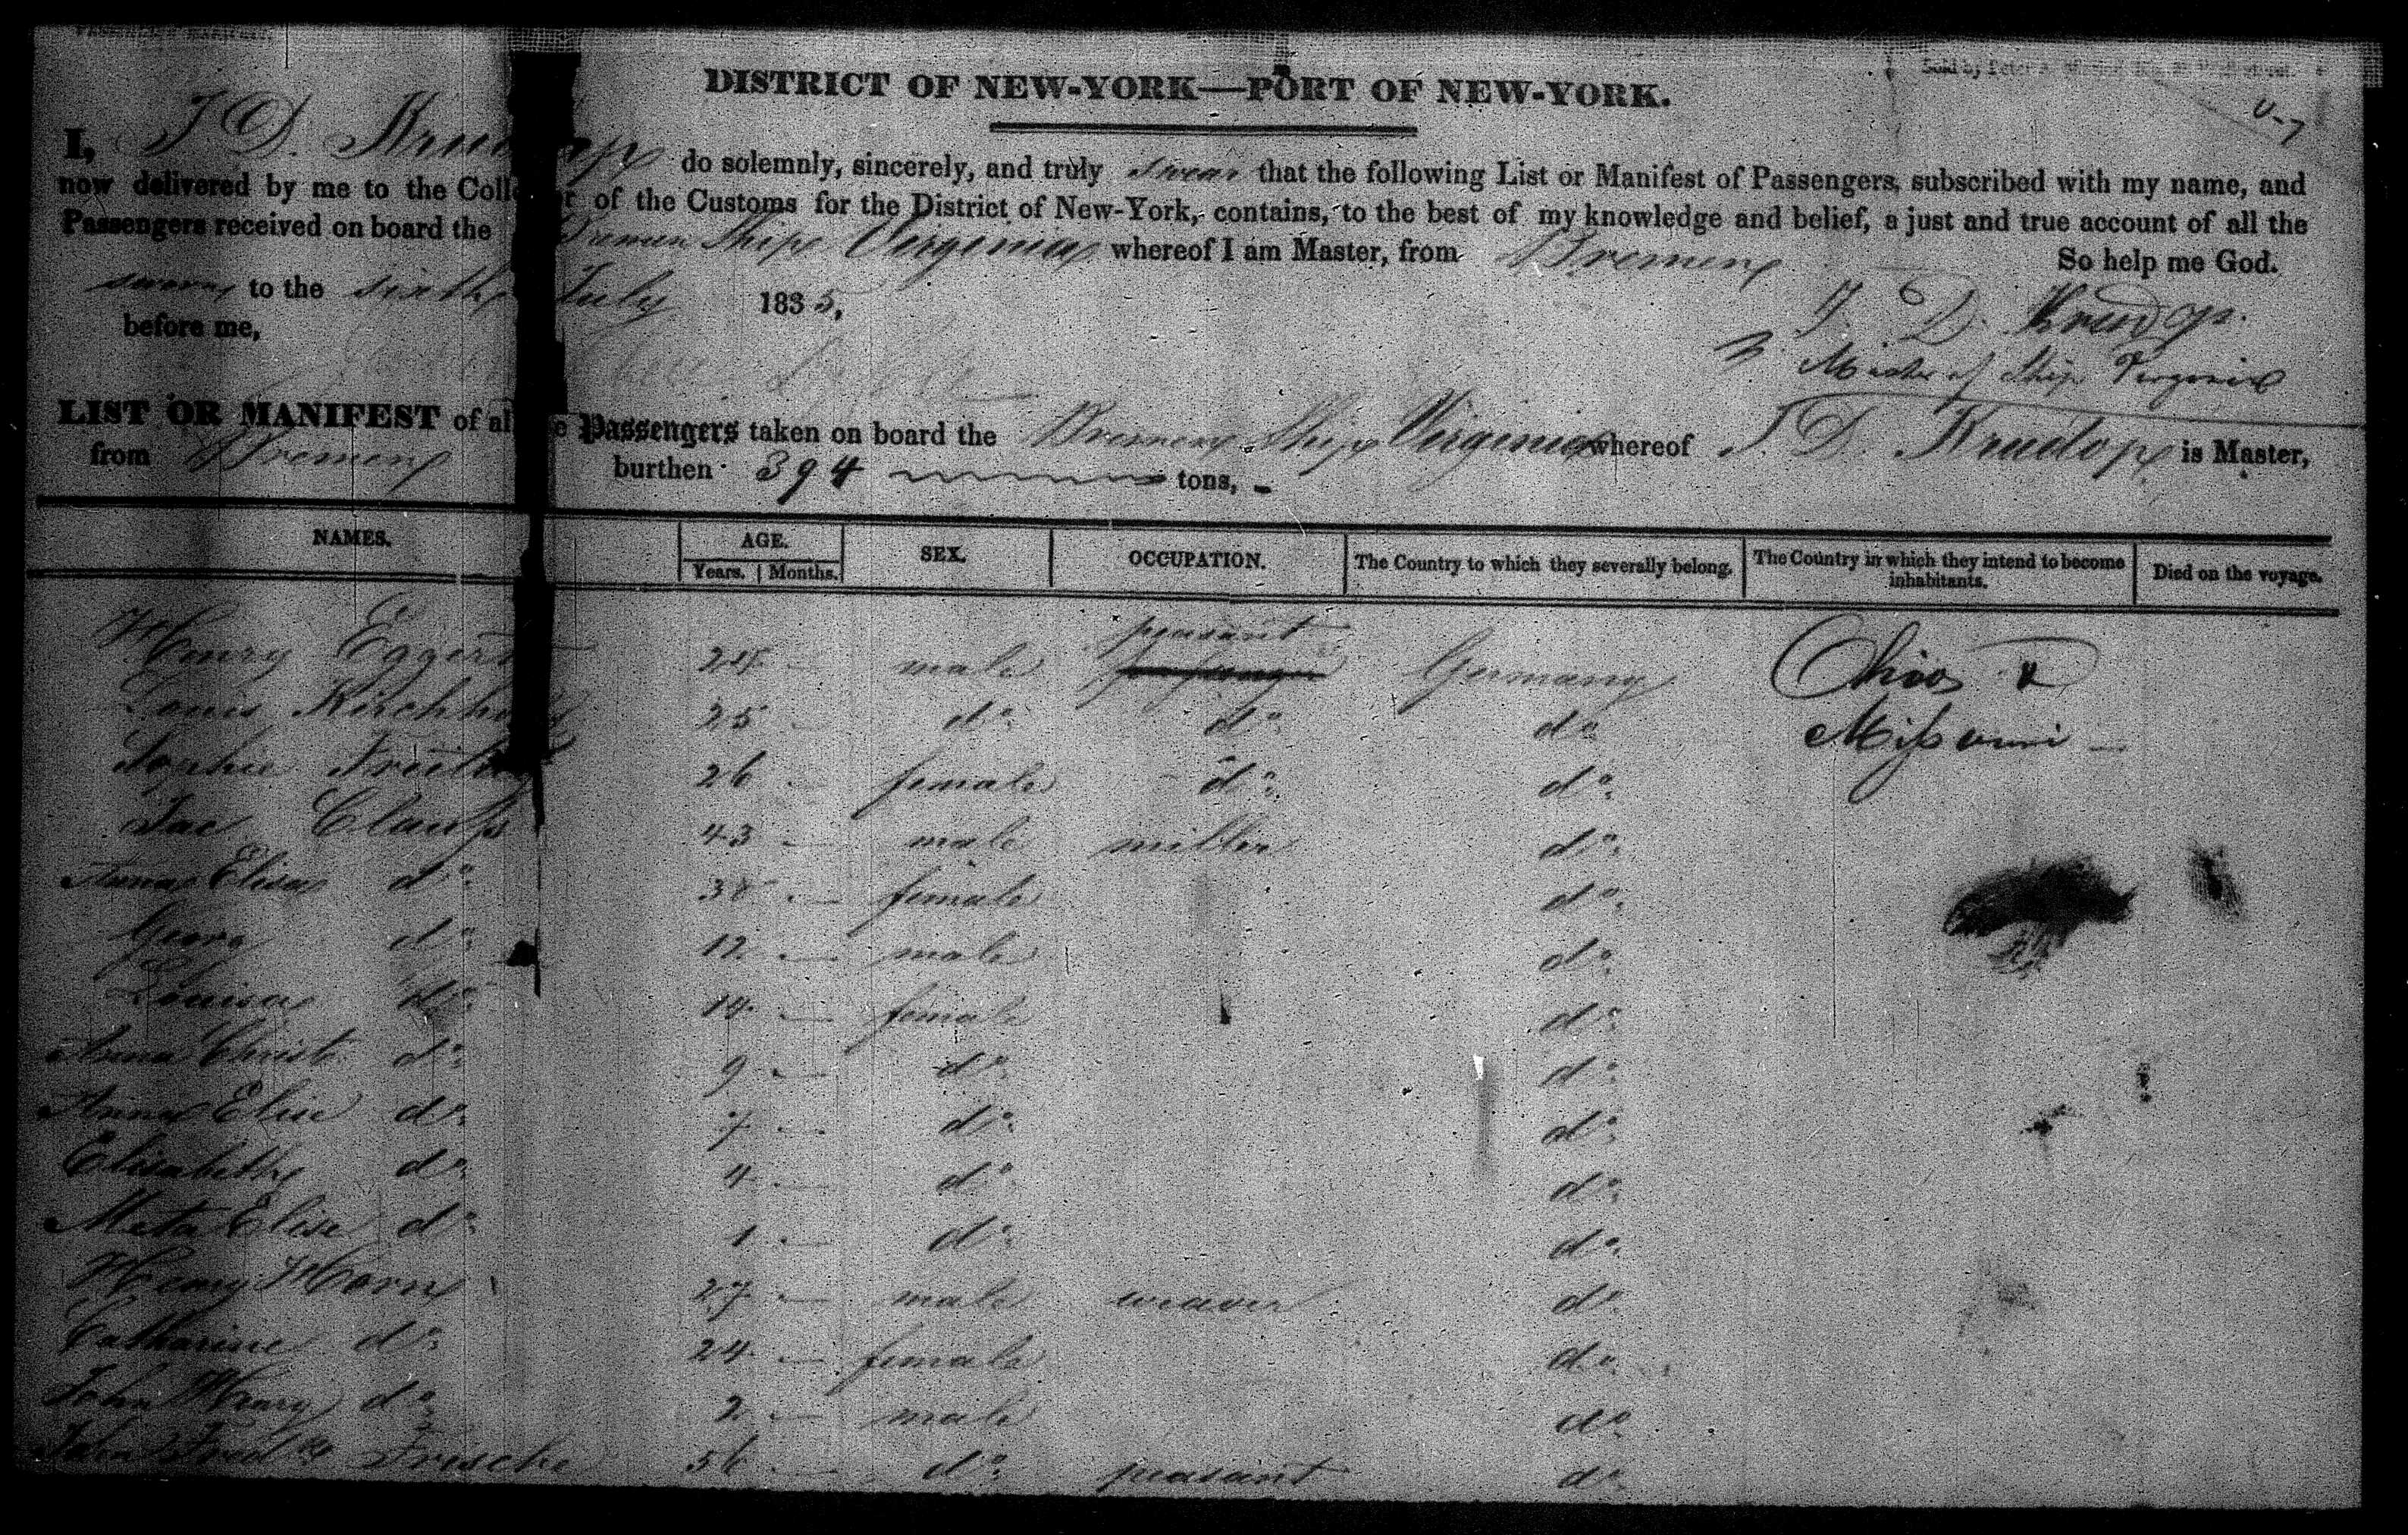 DISTRICT OF NEW-YORK—PORT OF NEW-YORK.
I, J D. Kruedop do solemnly, sincerely, and truly swear that the following List or Manifest of Passengers, subscribed with my name, and
now delivered by me to the Coll r of the Customs for the District of New-York, contains, to the best of my knowledge and belief, a just and true account of all the
Passengers received on board the Bremen Ship Virginia whereof I am Master, from Bremen
So help me God.
sworn to the sixth July 1835,
before me,
J. D. Kruedop.
Master of Ship Virginia
LIST OR MANIFEST of al e Passengers taken on board the Bremen Ship Virginia whereof J. D. Kruedop is Master,
from Bremen burthen 394 tons,
NAMES. AGE. SEX. OCCUPATION. The Country to which they severally belong. The Country in which they intend to become inhabitants. Died on the voyage.
Years. Months.
peasant
Henry Eggers male Germany Ohio &
Louis Kirchho 25 — do do do Missouri —
Sophie 26 — female do do
Jac Clauss 43 — male miller do
Anna Elisa do 38 — female do
Georg do 12 — male do
Louisa do 14 — female do
Anna Christ. do 9 — do do
Anna Elise do 7 — do do
Elisabeth do 4 — do do
Meta Elise do 1 — do do
Henry Horn 27 — male weaver do
Catharine do 24 — female do
John Henry do 2 — male do
John Fred Fresche 56 — do peasant do